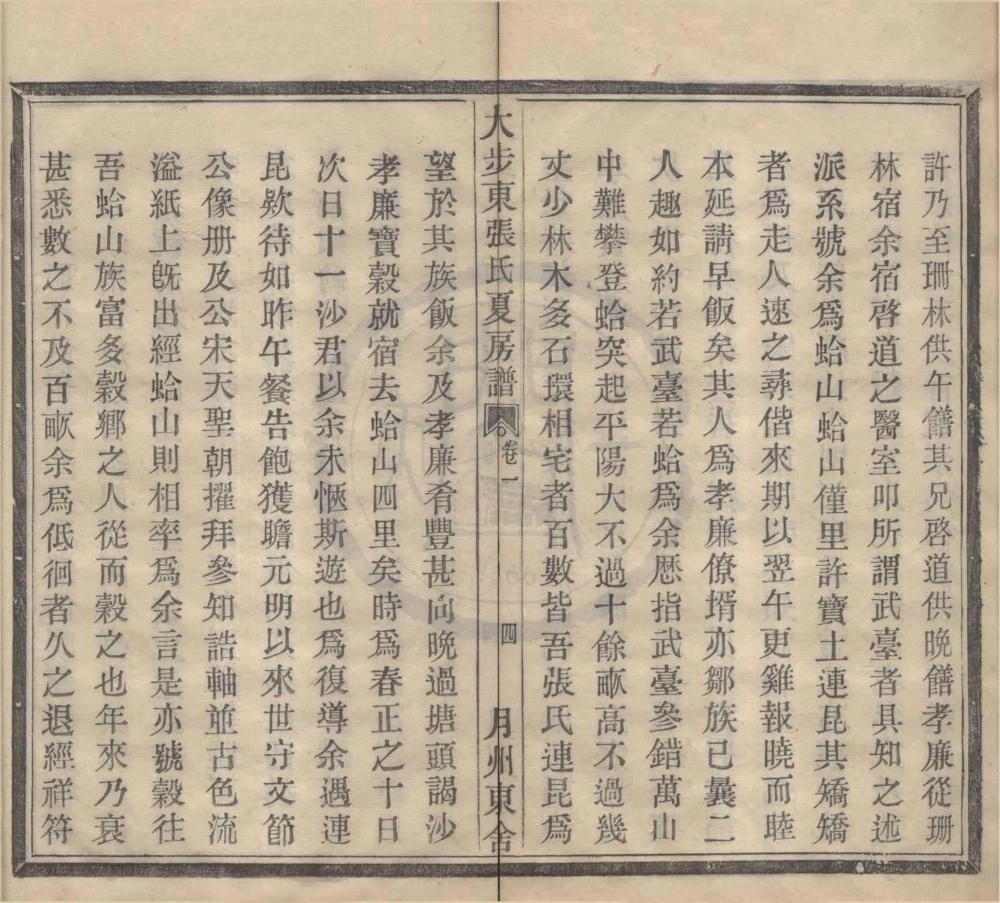 許乃至珊林供午饍其兄啓道供晚饍孝廉從珊
林宿余宿啓道之醫室叩所謂武臺者具知之述
派系號余爲蛤山蛤山僅里許寶土連昆其矯矯
者爲走人速之尋偕來期以翌午更雞報曉而睦
本延請早飯矣其人爲孝廉僚壻亦鄒族已曩二
人趣如約若武臺若蛤爲余歷指武臺參錯萬山
中難攀登蛤突起平陽大不過十餘畝高不過幾
丈少林木多石環相宅者百數皆吾張氏連昆爲
大步東張氏夏房譜 卷一 四 月州東舍
望於其族飯余及孝廉肴豐甚向晚過塘頭謁沙
孝廉寶穀就宿去蛤山四里矣時爲春正之十日
次日十一沙君以余未愜斯遊也爲復導余遇連
昆欵待如昨午餐告飽獲瞻元明以來世守文節
公像册及公宋天聖朝擢拜參知誥軸並古色流
溢紙上旣出經蛤山則相率爲余言是亦號穀往
吾蛤山族富多穀鄉之人從而穀之也年來乃衰
甚悉數之不及百畝余爲低徊者久之退經祥符